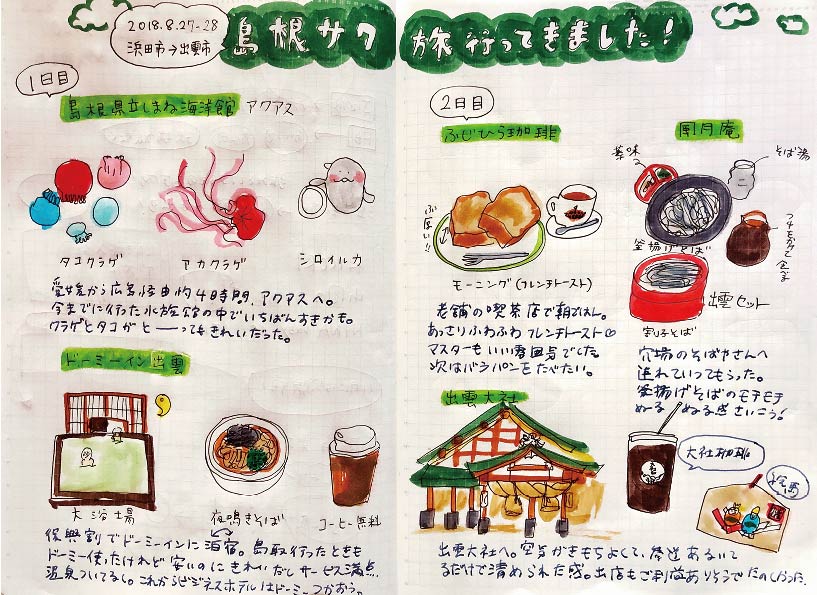 2018.8.27-28
浜田市→出雲市
島根サク旅行ってきました！
1日目
島根県立しまね海洋館 アクアス
タコクラゲ
アカクラゲ
シロイルカ
愛媛から広島経由約4時間、アクアスへ。
今までに行った水族館の中でいちばんすきかも。
クラゲとタコがとーってもきれいだった。
ドーミーイン出雲
大浴場
夜鳴きそば
コーヒー無料
保興割でドーミーインに泊宿。鳥取行ったときも
ドーミー使ったけれど安いのにきれいだしサービス満点
温泉ついてるし。これからビジネスホテルはドーミーつかおう。
2日目
ふじひら珈琲
ぶ厚い!!
モーニング(フレンチトースト)
老舗の喫茶店で朝ごはん。
あっさりふわふわフレンチトースト♡
マスターもいい雰囲気でした。
次はバラパンをたべたい。
風月庵
薬味
そば湯
つゆをかけて食す
釜揚げそば
出雲セット
割子そば
穴場のそばやさんへ
連れていってもらった。
釜揚げそばのモチモチ
ぬーる ぬる感さいこう！
出雲大社
大社珈琲
絵馬
出雲大社へ。空気がきもちよくて、参道あるいて
るだけで清められた感。出店もご利益ありそうでたのしかった。